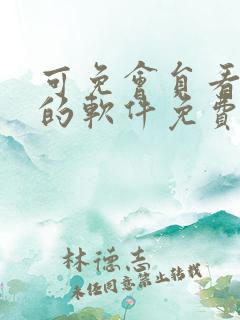 可免會員看
的軟件免費
林德志
未經同意禁止轉載